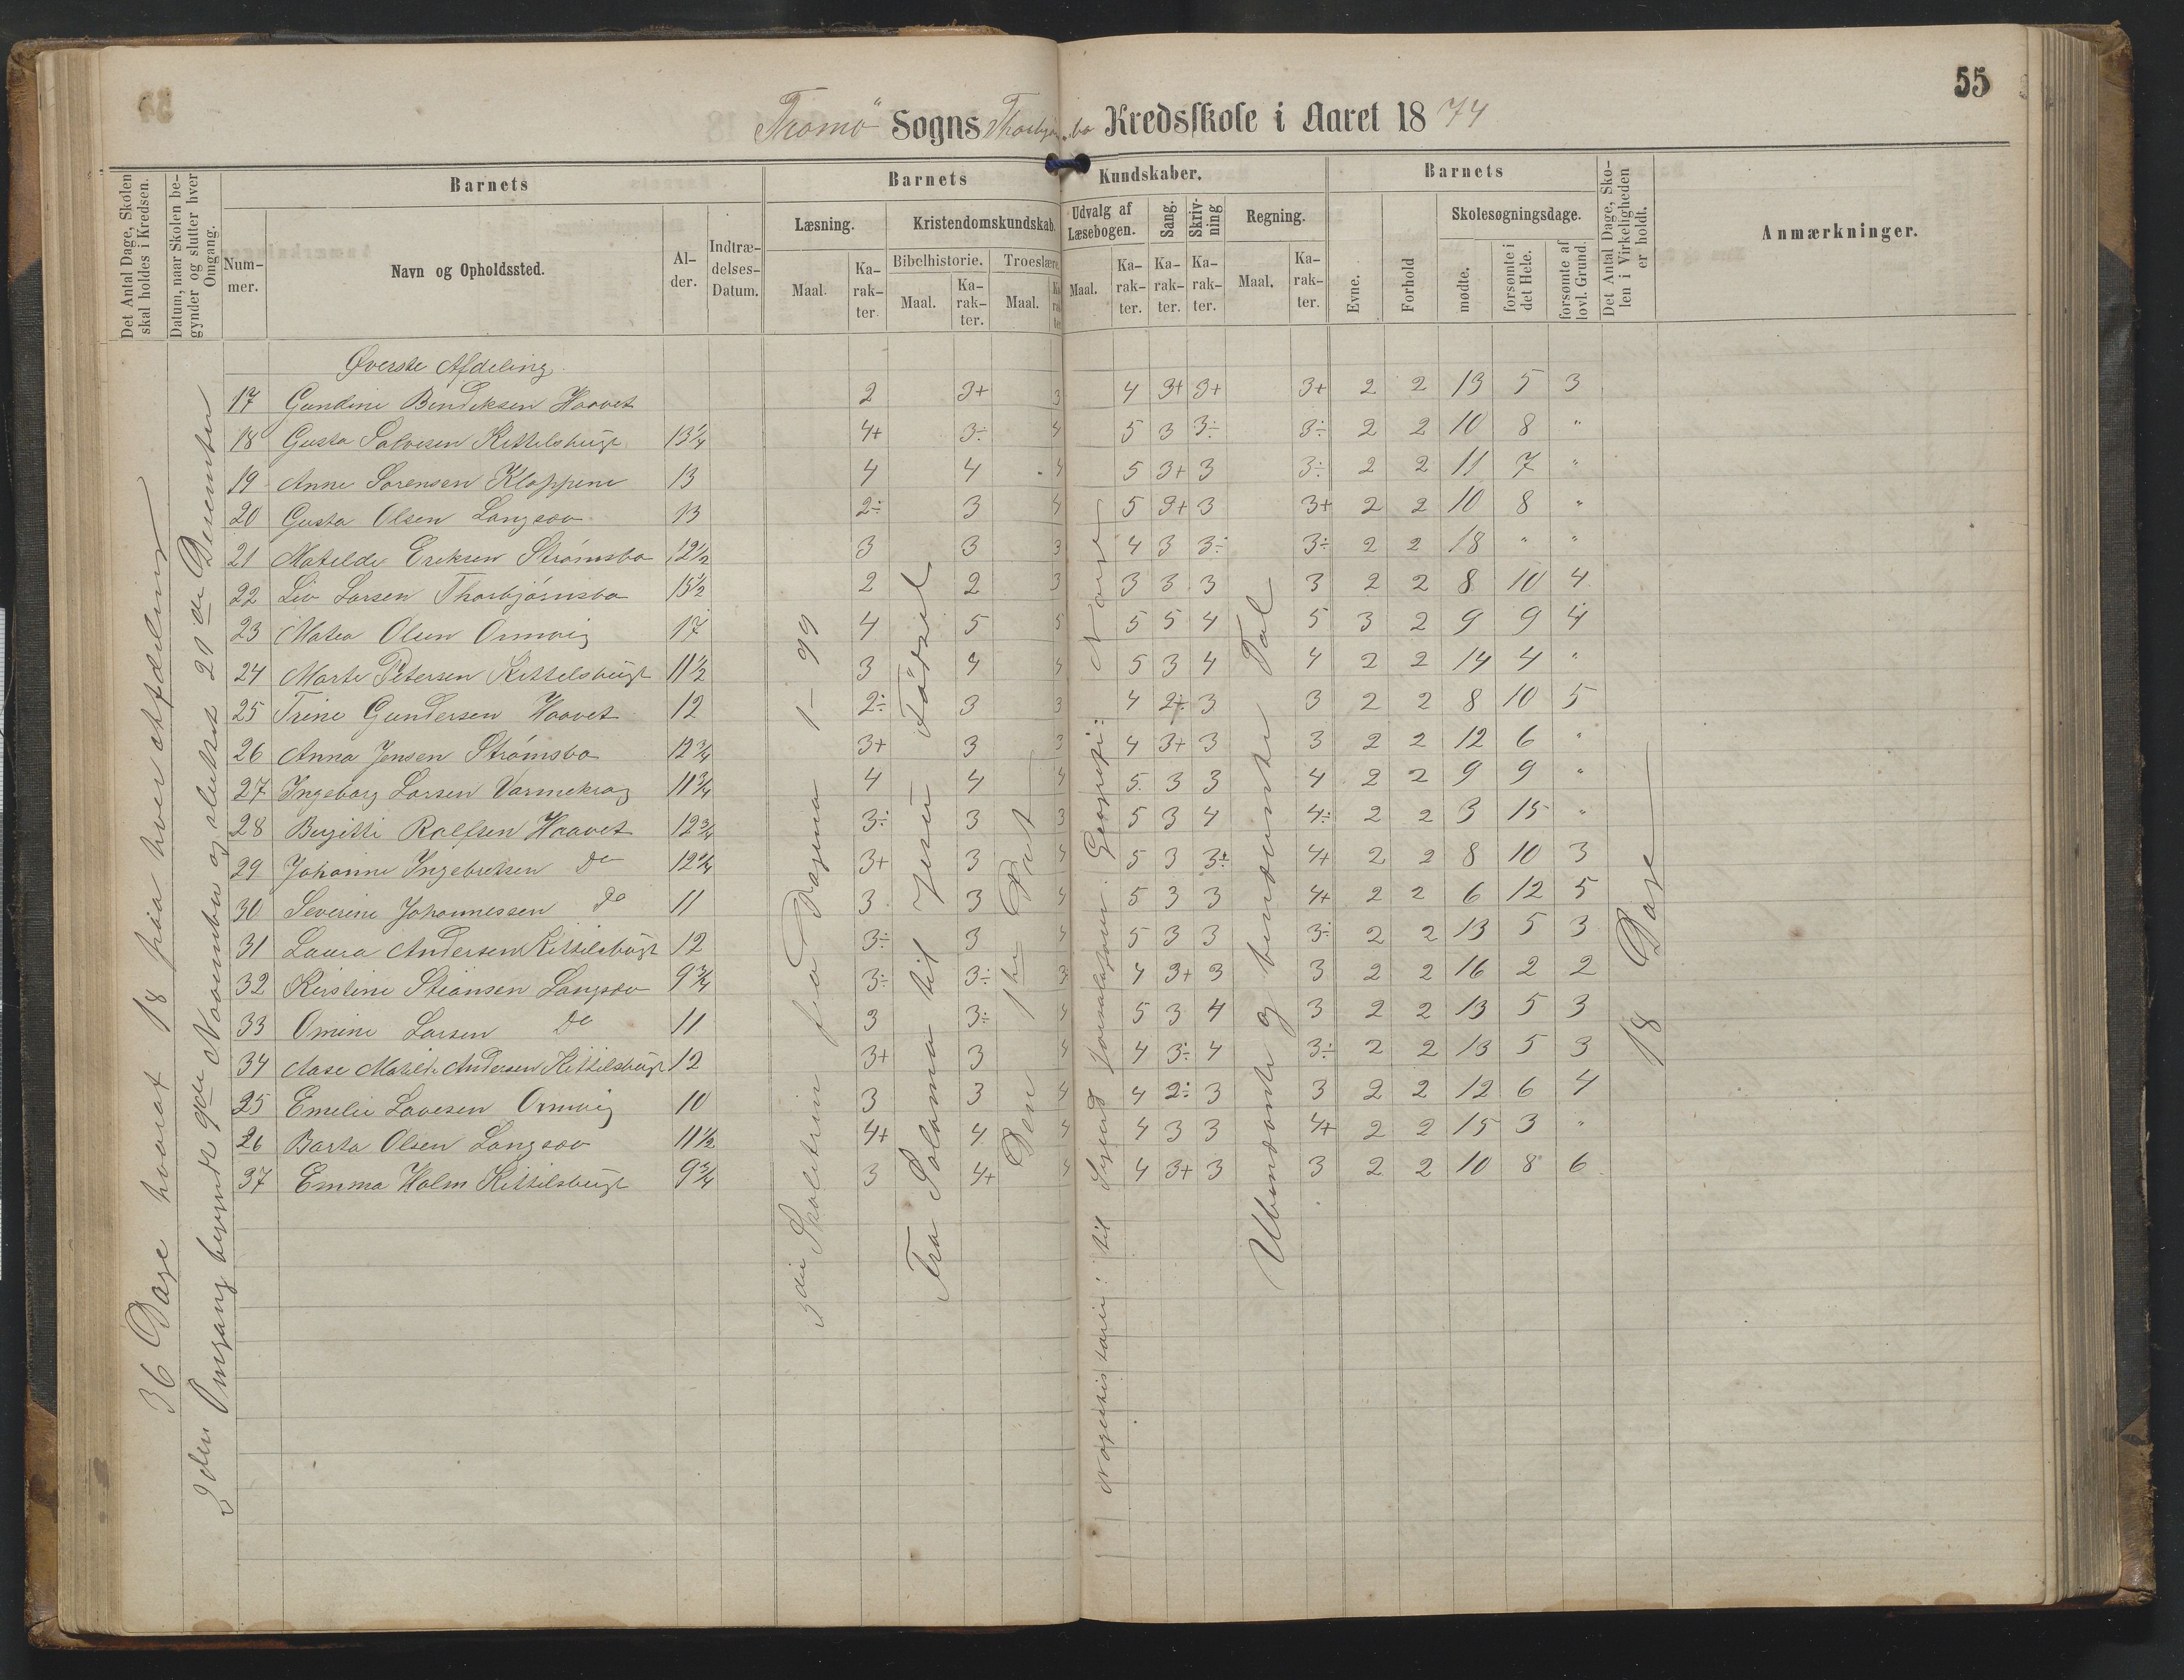 55
Tromø Sogns Thorbjørnsbo Kredsskole i Aaret 1874
Det Antal Dage, Skolen skal holdes i Kredsen.
Datum, naar Skolen begynder og slutter hver Omgang.
Barnets
Nummer.
Navn og Opholdssted.
Alder.
Indtrædelses-Datum.
Barnets Kundskaber.
Læsning.
Maal.
Karakter.
Kristendomskundskab.
Bibelhistorie.
Maal.
Karakter.
Troeslære.
Maal.
Karakter
Udvalg af Læsebogen.
Maal.
Karakter.
Sang.
Karakter.
Skrivning
Karakter.
Regning.
Maal.
Karakter.
Barnets
Evne.
Forhold
Skolesøgningsdage.
mødte.
forsømte i det Hele.
forsømte af lovl. Grund.
Det Antal Dage, Skolen i Virkeligheden er holdt.
Anmærkninger.
36 Dage hvoraf 18 paa hver Afdeling
2den Omgang begyndt 9de November og sluttet 21de December
3die Skoletrin fra Pagina 1-99
Fra Salomo til Jesu Fødsel
Den 1ste Part
til Sigurd Jorsalafarer. Geografi: Norge
Ubenævnte og benævnte Tal
18 Dage
Øverste Afdeling
17 Gundine Bendiksen Haavet 2 3+ 3 4 3+ 3+ 3+ 2 2 13 5 3
18 Gusta Salvesen Kittelsbugt 13¼ 4+ 3÷ 4 5 3 3÷ 3÷ 2 2 10 8 "
19 Anne Sørensen Kloppene 13 4 4 4 5 3+ 3 3÷ 2 2 11 7 "
20 Gusta Olsen Langsæv 13 2÷ 3 4 5 3+ 3 3+ 2 2 10 8 "
21 Matilde Eriksen Strømsbo 12½ 3 3 3 4 3 3÷ 3÷ 2 2 18 " "
22 Liv Larsen Thorbjørnsbo 13½ 2 2 3 3 3 3 3 2 2 8 10 4
23 Matea Olsen Ormvig 17 4 5 5 5 5 4 5 3 2 9 9 4
24 Marte Petersen Kittelsbugt 11½ 3 4 4 5 3 4 4 2 2 14 4 "
25 Trine Gundersen Haavet 12 2÷ 3 3 4 2÷ 3 3 2 2 8 10 5
26 Anna Jensen Strømsbo 12¾ 3+ 3 3 4 3+ 3 3 2 2 12 6 "
27 Ingeborg Larsen Varmekrog 11¾ 4 4 4 5 3 3 4 2 2 9 9 "
28 Birgitte Rolfsen Haavet 12¾ 3÷ 3 3 5 3 4 4÷ 2 2 3 15 "
29 Johanne Ingebretsen Do 12¼ 3+ 3 4 5 3 3÷ 4+ 2 2 8 10 3
30 Severine Johannessen Do 11 3 3 4 5 3 3 4+ 2 2 6 12 5
31 Laura Andersen Kittilsbugt 12 3÷ 3 4 5 3 3 3÷ 2 2 13 5 3
32 Kirstine Stiansen Langsæv 9¾ 3÷ 3÷ 3 4 3+ 3 3 2 2 16 2 2
33 Omine Larsen Do 11 3 3÷ 4 5 3 4 3 2 2 13 5 3
34 Aase Matilde Andersen Kittilsbugt 12 3+ 3 4 4 3÷ 4 3÷ 2 2 13 5 3
25 Emelie Lavesen Ormvig 10 3 3 4 4 2÷ 3 3 2 2 12 6 4
26 Barta Olsen Langsæv 11½ 4+ 4 4 4 3 3 4+ 2 2 15 3 "
37 Emma Holm Kittilsbugt 9¾ 3 4+ 4 4 3+ 3 3 2 2 10 8 6